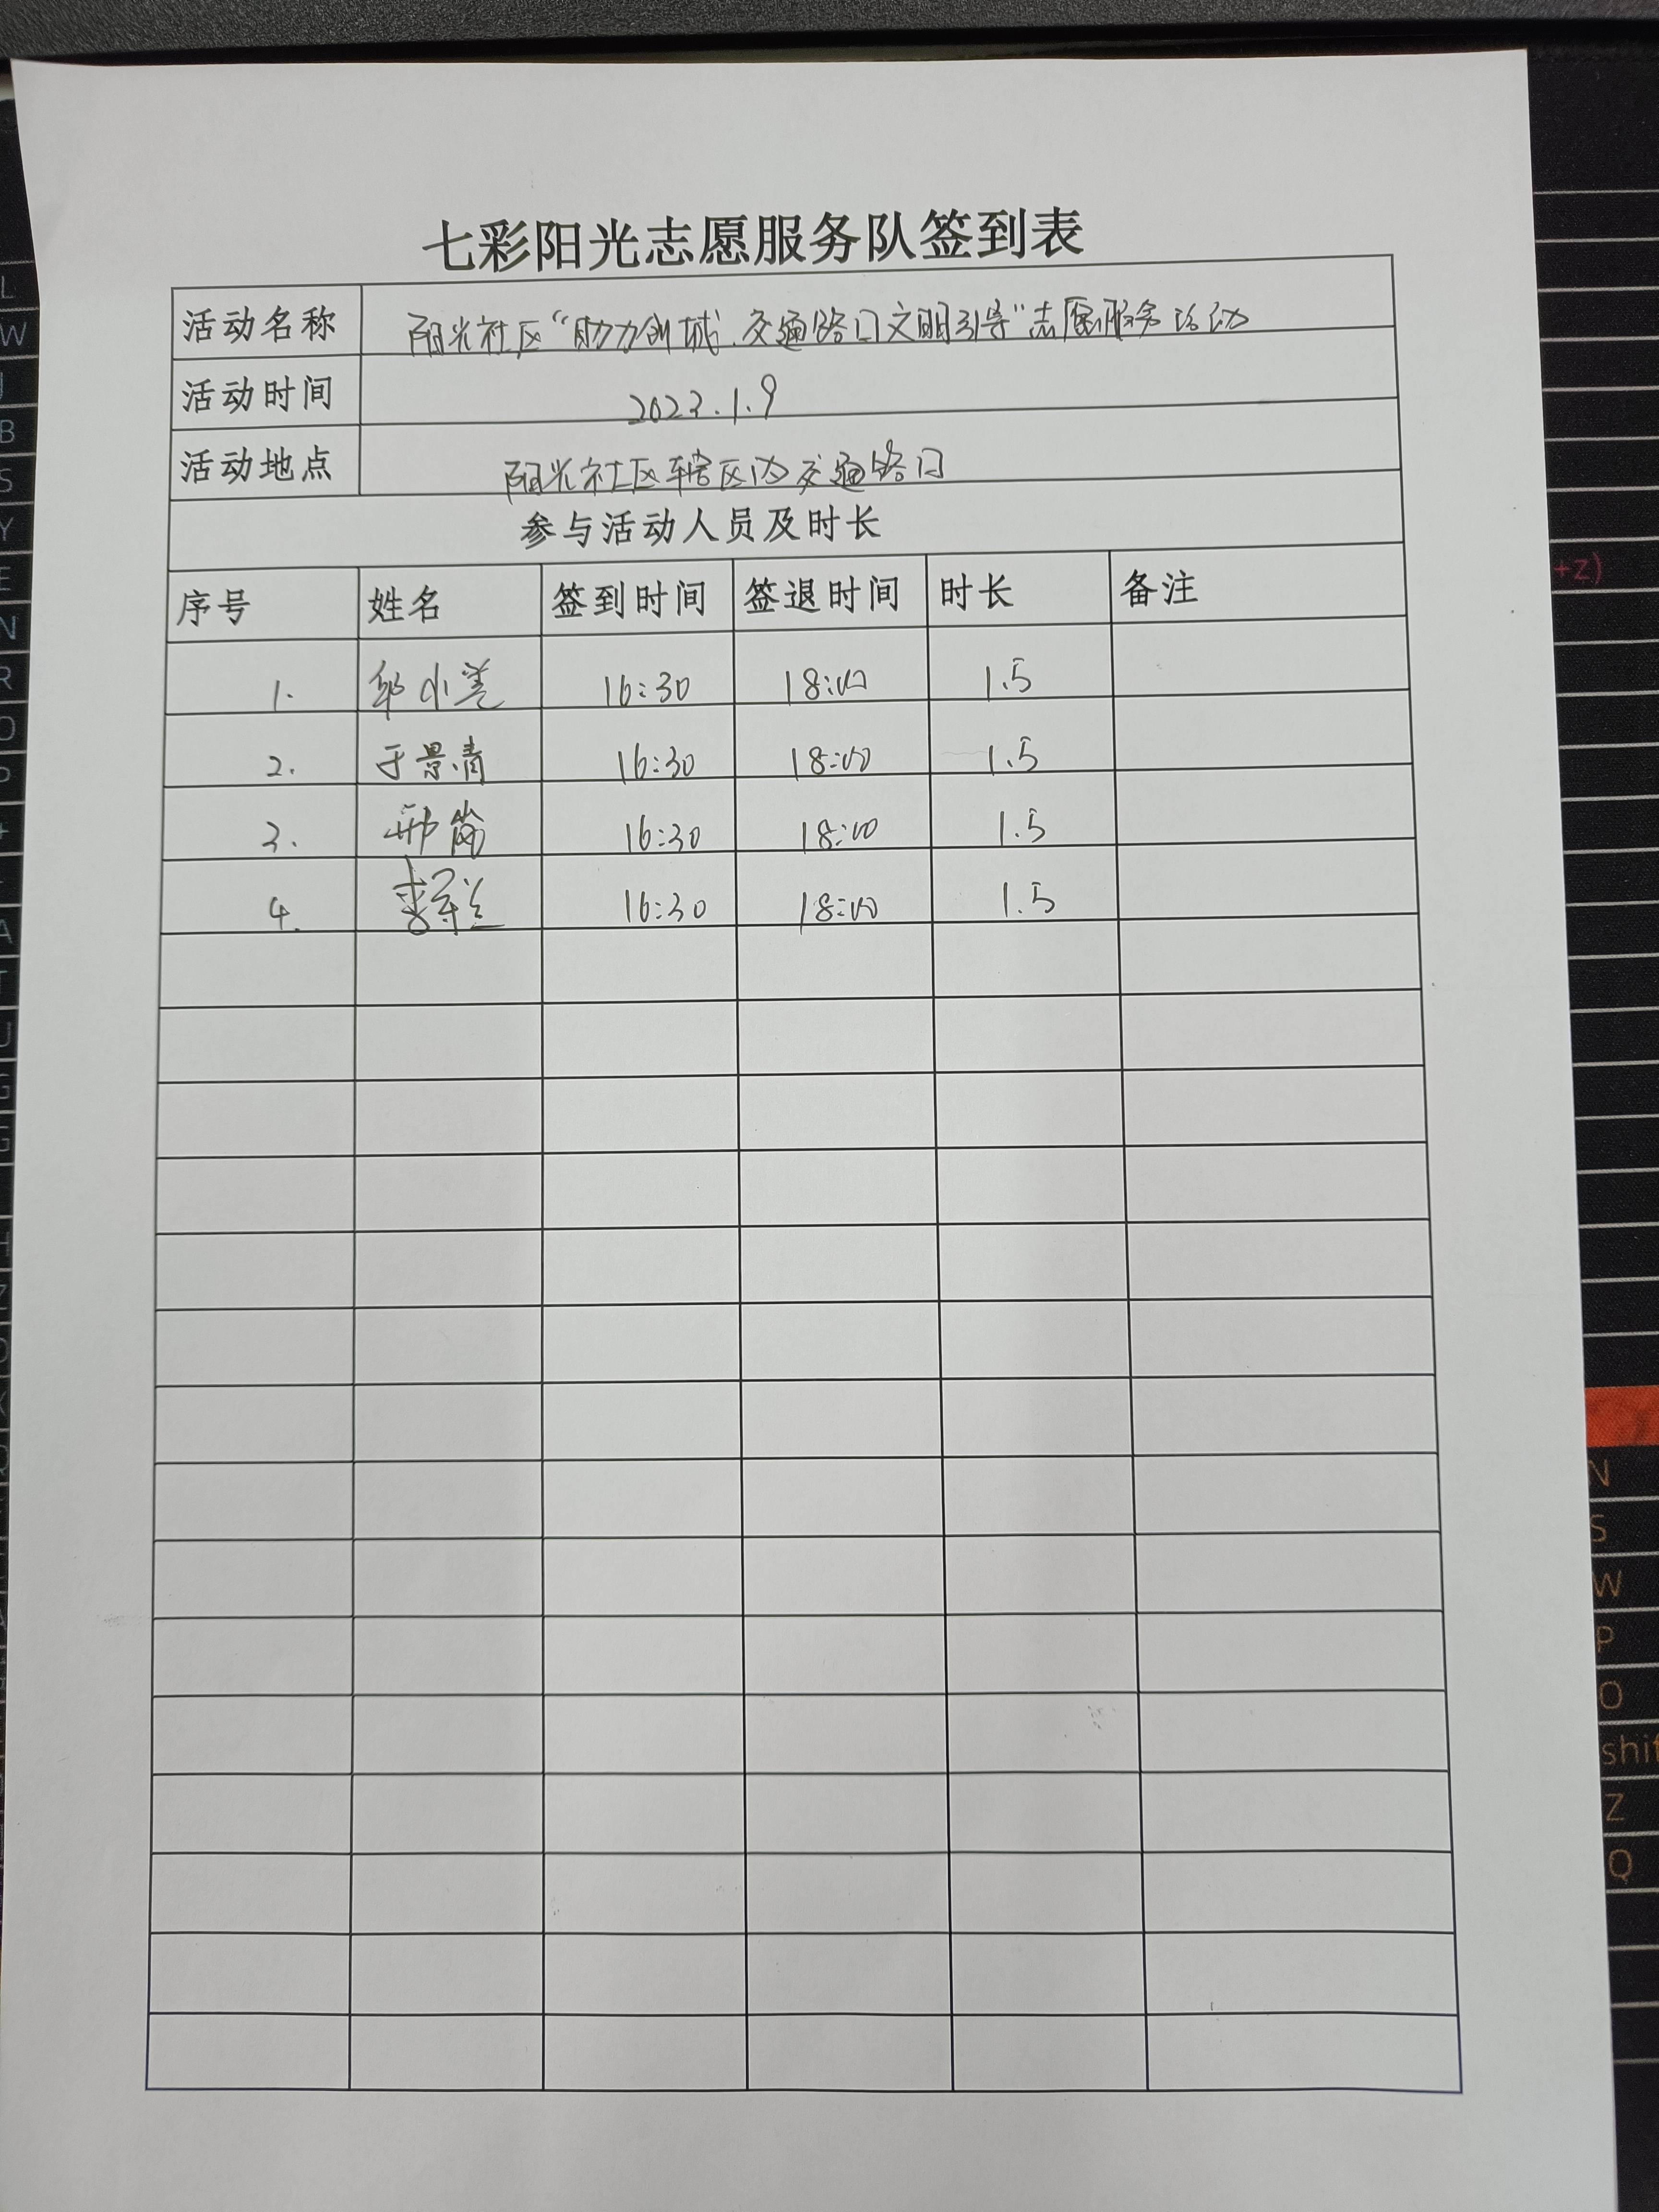 七彩阳光志愿服务队签到表
活动名称 阳光社区“助力创城、交通路口文明引导”志愿服务活动
活动时间 2023.1.9
活动地点 阳光社区辖区内交通路口
参与活动人员及时长
序号 姓名 签到时间 签退时间 时长 备注
1. 16:30 18:00 1.5
2. 于景清 16:30 18:00 1.5
3. 16:30 18:00 1.5
4. 16:30 18:00 1.5